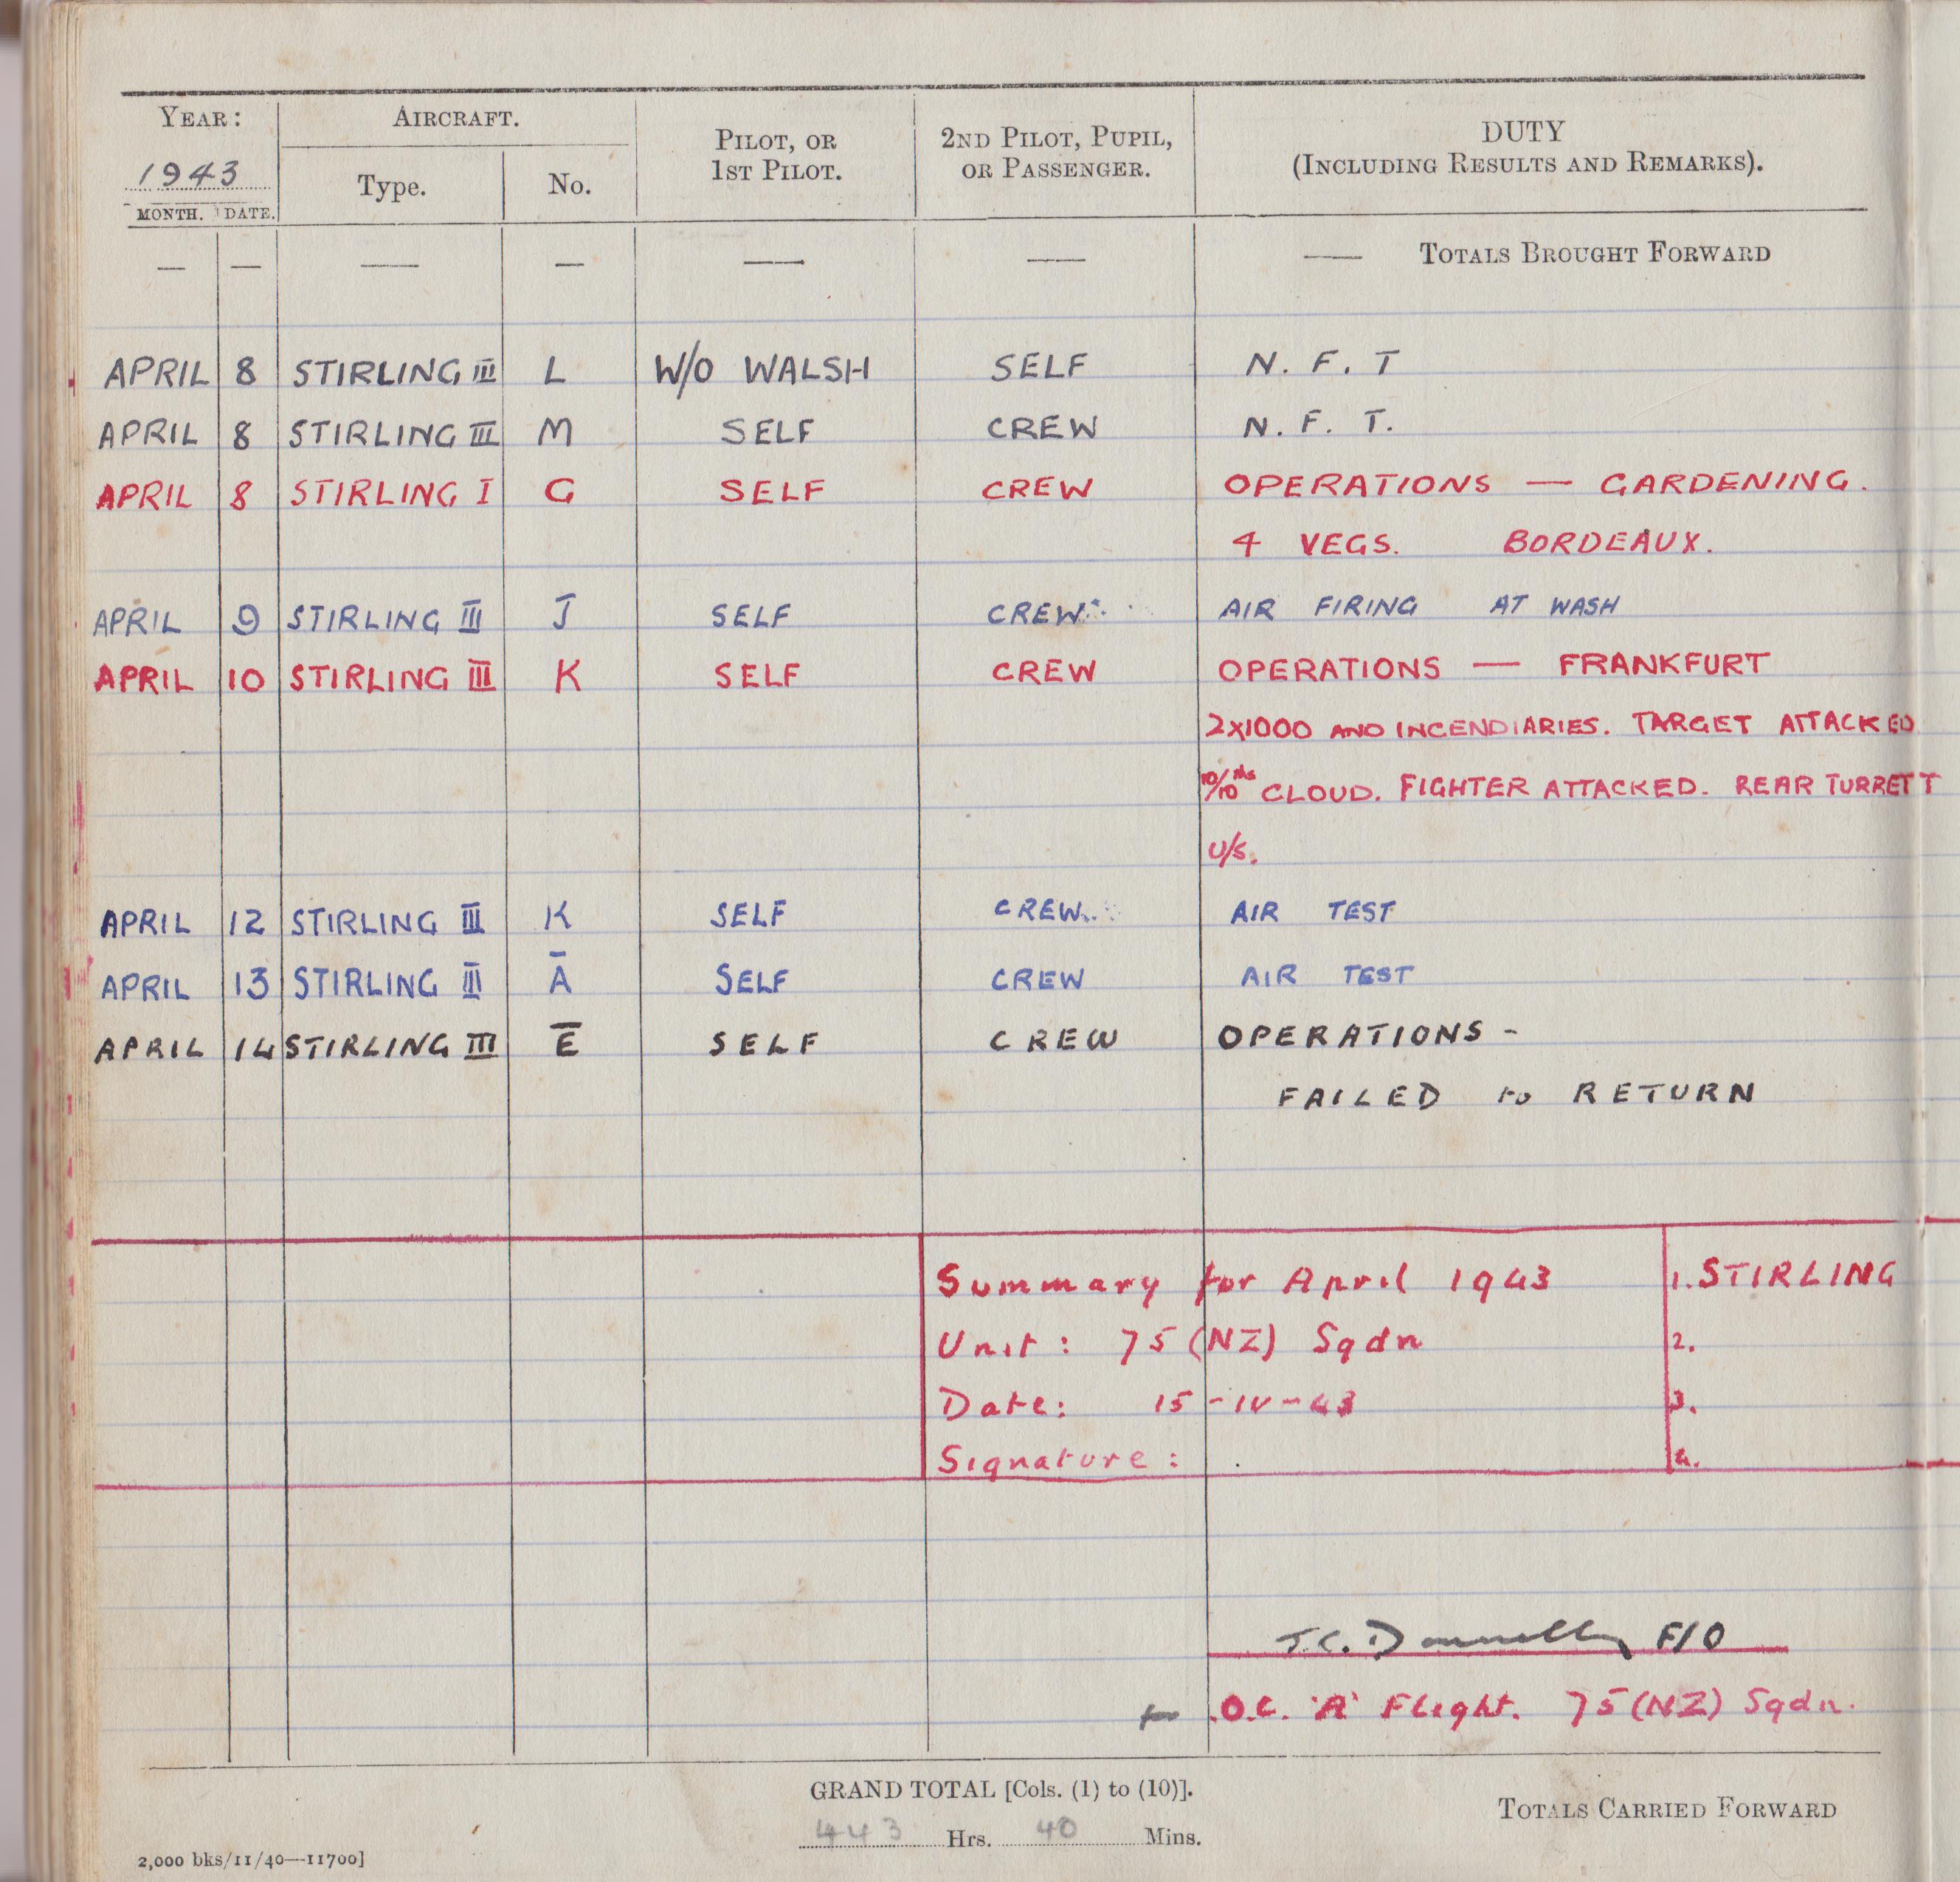 YEAR: AIRCRAFT. PILOT, OR 1ST PILOT. 2ND PILOT, PUPIL, OR PASSENGER. DUTY (INCLUDING RESULTS AND REMARKS).
1943 Type. No.
MONTH. DATE.
— — — — — — — TOTALS BROUGHT FORWARD
APRIL 8 STIRLING III L W/O WALSH SELF N. F. T
APRIL 8 STIRLING III M SELF CREW N. F. T.
APRIL 8 STIRLING I G SELF CREW OPERATIONS — GARDENING.
4 VEGS. BORDEAUX.
APRIL 9 STIRLING III J SELF CREW AIR FIRING AT WASH
APRIL 10 STIRLING III K SELF CREW OPERATIONS — FRANKFURT
2X1000 AND INCENDIARIES. TARGET ATTACKED
10/10 ths CLOUD. FIGHTER ATTACKED. REAR TURRETT
U/S.
APRIL 12 STIRLING III K SELF CREW AIR TEST
APRIL 13 STIRLING III Ā SELF CREW AIR TEST
APRIL 14 STIRLING III Ē SELF CREW OPERATIONS -
FAILED to RETURN
Summary for April 1943 1. STIRLING
Unit: 75 (NZ) Sqdn 2.
Date: 15-IV-43 3.
Signature: 4.
J.C. Donnelly F/O
for O.C. 'A' Flight. 75 (NZ) Sqdn.
GRAND TOTAL [Cols. (1) to (10)].
443 Hrs. 40 Mins.
TOTALS CARRIED FORWARD
2,000 bks/11/40—11700]